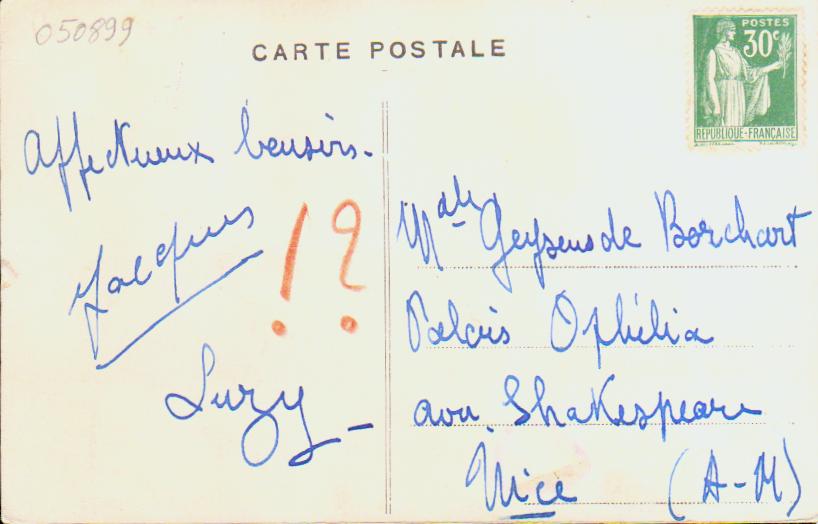 050899
CARTE POSTALE
POSTES
30c
RÉPUBLIQUE-FRANÇAISE
Affectueux baisirs.
Jacques
!?
Suzy
Mme Geysens de Borchart
Palais Ophélia
ave. Shakespeare
Nice (A-M)